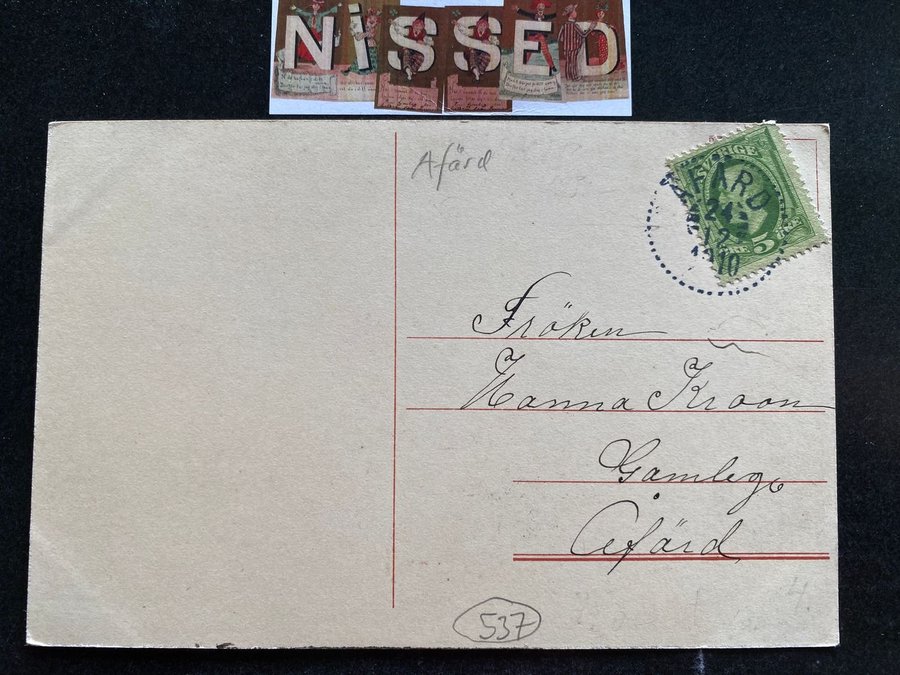 NISSED
Afärd
SVERIGE
5 ÖRE
ÅFÄRD
24
12
1910
Fröken
Hanna Kroon
Gamleg
Åfärd
537
4.